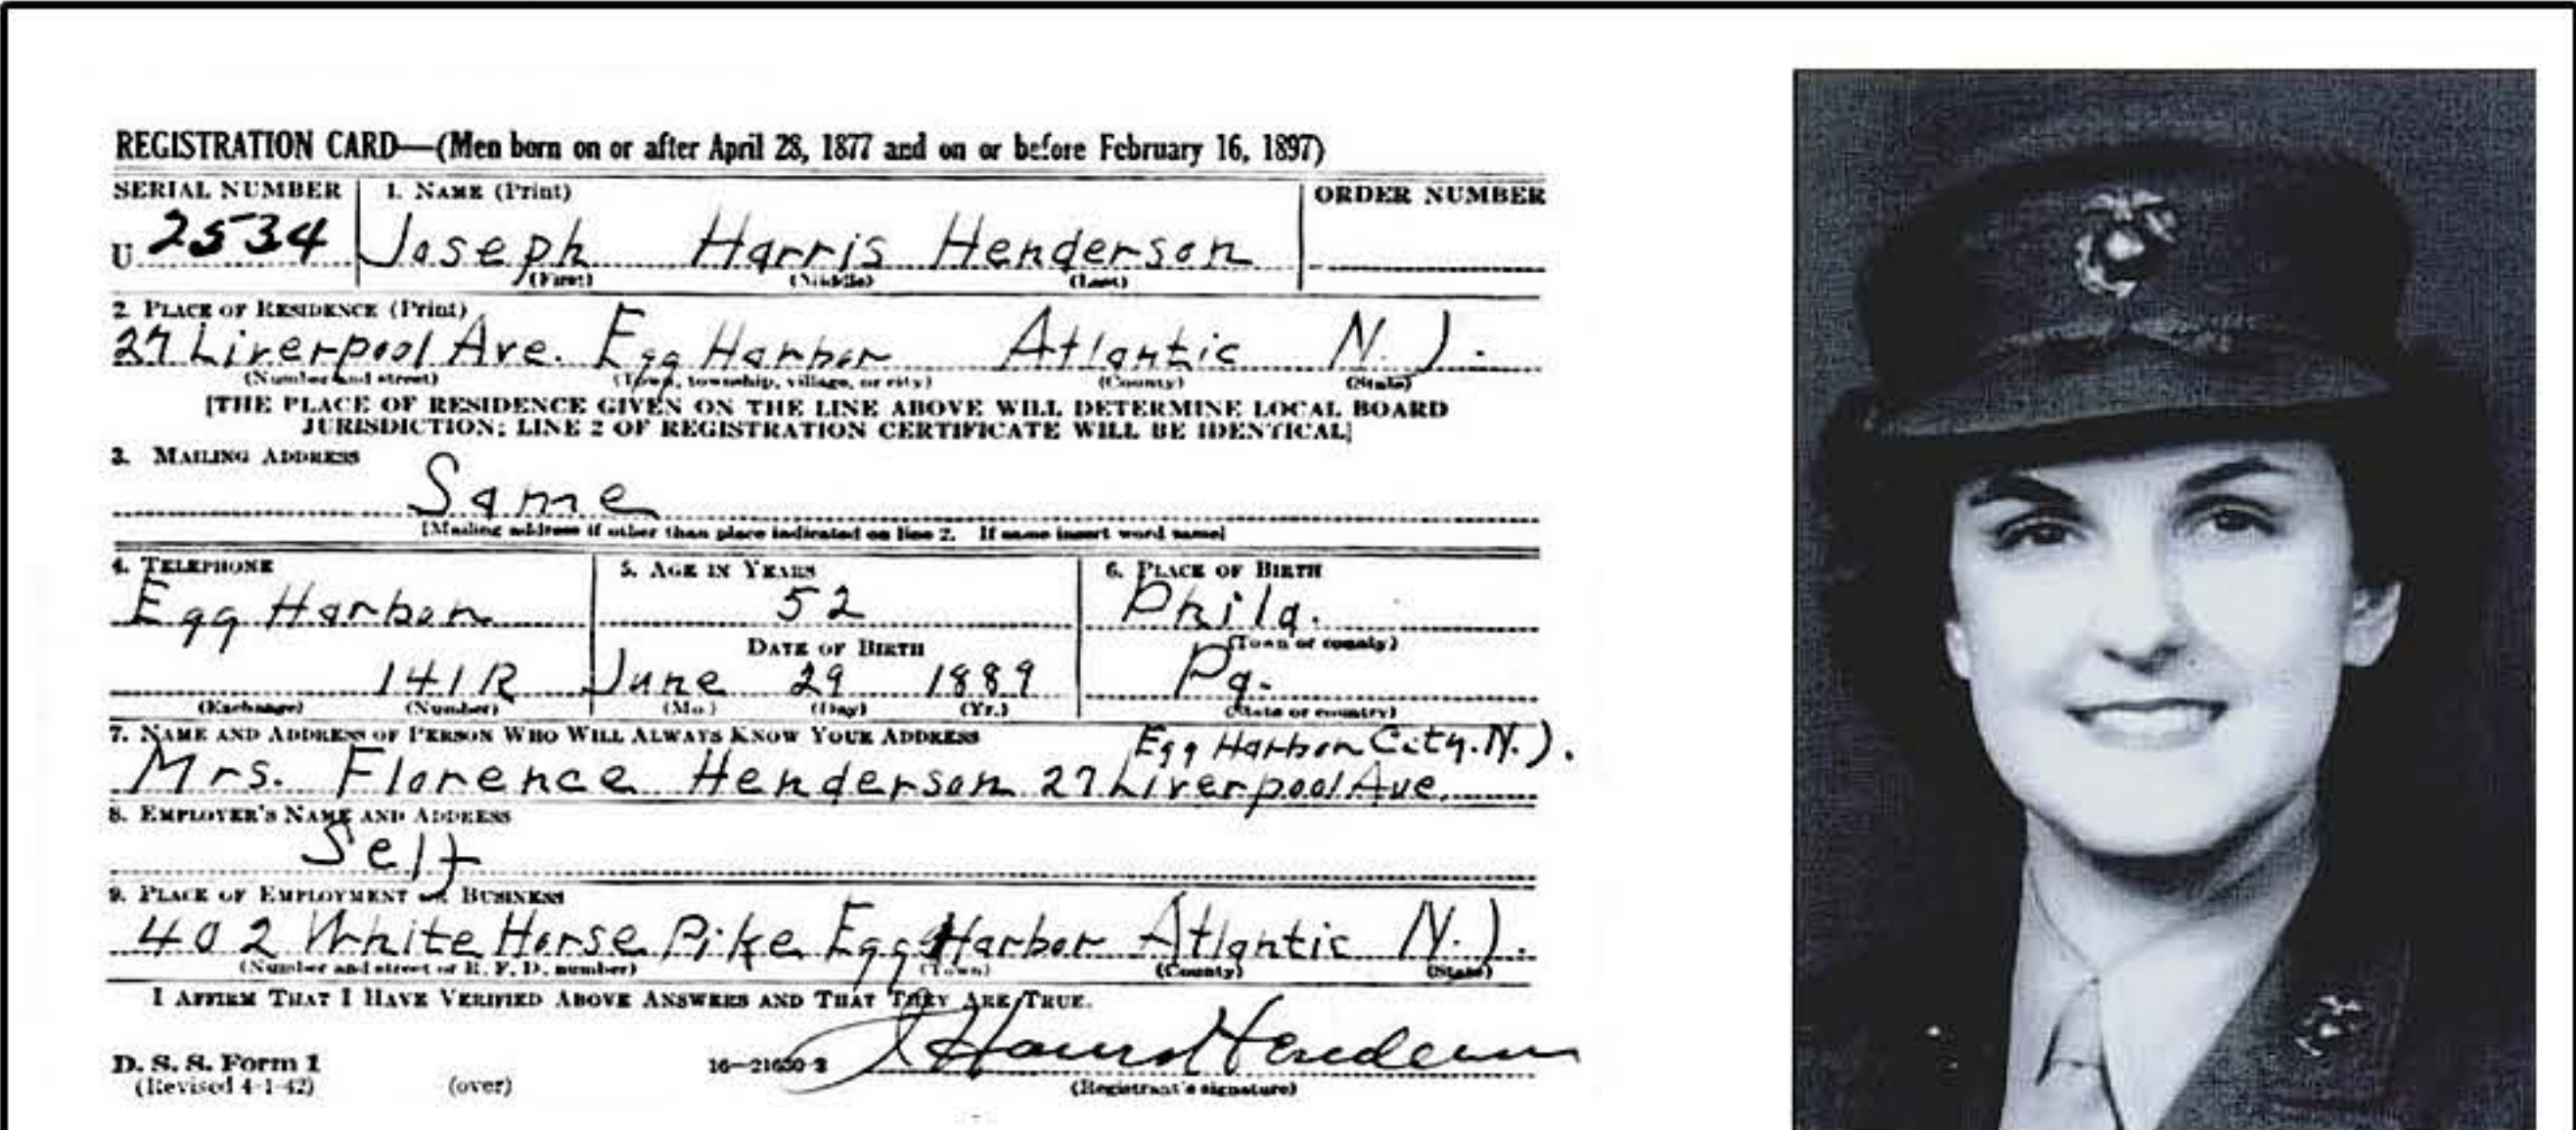 REGISTRATION CARD—(Men born on or after April 28, 1877 and on or before February 16, 1897)
SERIAL NUMBER 1. NAME (Print) ORDER NUMBER
U 2534 Joseph Harris Henderson
(First) (Middle) (Last)
2. PLACE OF RESIDENCE (Print)
27 Liverpool Ave. Egg Harbor Atlantic N.J.
(Number and street) (Town, township, village, or city) (County) (State)
[THE PLACE OF RESIDENCE GIVEN ON THE LINE ABOVE WILL DETERMINE LOCAL BOARD
JURISDICTION; LINE 2 OF REGISTRATION CERTIFICATE WILL BE IDENTICAL]
3. MAILING ADDRESS
Same
[Mailing address if other than place indicated on line 2. If same insert word same]
4. TELEPHONE 5. AGE IN YEARS 6. PLACE OF BIRTH
Egg Harbor 52 Phila.
DATE OF BIRTH (Town or county)
141R June 29 1889 Pa.
(Exchange) (Number) (Mo.) (Day) (Yr.) (State or country)
7. NAME AND ADDRESS OF PERSON WHO WILL ALWAYS KNOW YOUR ADDRESS Egg Harbor City. N.J.
Mrs. Florence Henderson 27 Liverpool Ave.
8. EMPLOYER'S NAME AND ADDRESS
Self
9. PLACE OF EMPLOYMENT OR BUSINESS
402 White Horse Pike Egg Harbor Atlantic N.J.
(Number and street or R. F. D. number) (Town) (County) (State)
I AFFIRM THAT I HAVE VERIFIED ABOVE ANSWERS AND THAT THEY ARE TRUE.
J Harris Henderson
D. S. S. Form 1 16—21630-2
(Revised 4-1-42) (over) (Registrant's signature)